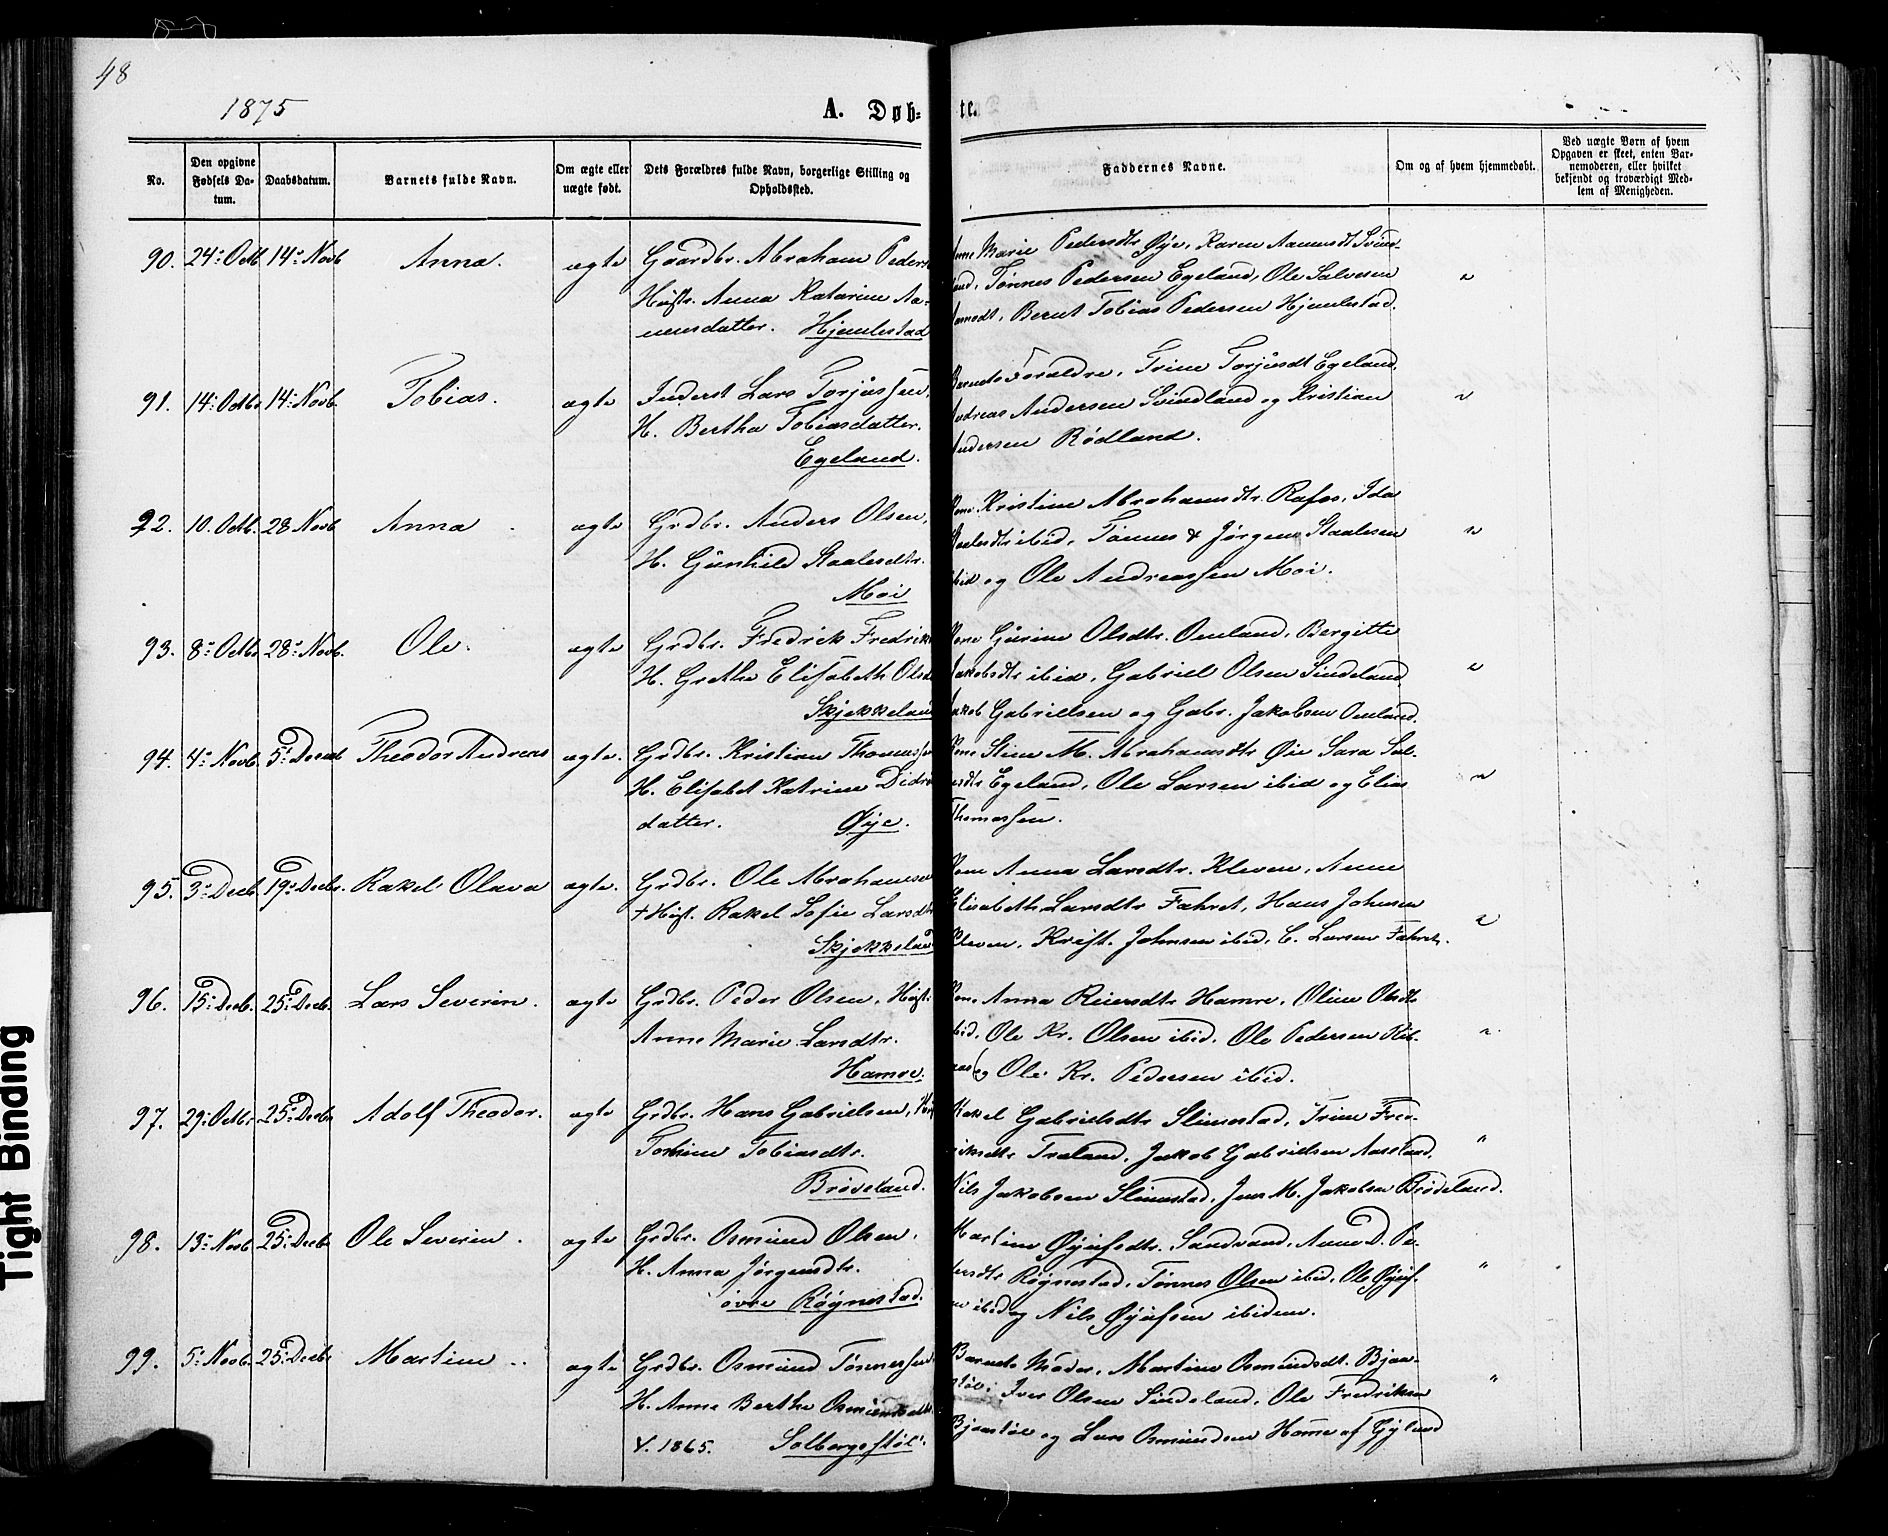 48
1875
A. Døb-
te.
No.
Den opgivne Fødsels Datum.
Daabsdatum.
Barnets fulde Navn.
Om ægte eller uægte født.
Dets Forældres fulde Navn, borgerlige Stilling og Opholdssted.
Faddernes Navne.
Om og af hvem hjemmedøbt.
Ved uægte Børn af hvem Opgaven er skeet, enten Barnemoderen, eller hvilket bekjendt og troværdigt Medlem af Menigheden.
90. 24: Octb 14: Novb Anna. ægte Gaardbr. Abraham Peders
Hustr. Anna Katarine Aa-
nensdatter. Hjemlestad
Marie Pedersdtr Øye, Karen Aanensdt Svind-
Tønnes Pedersen Egeland, Ole Salvesen
Bernt Tobias Pedersen Hjemlestad.
91. 14: Octbr 14: Novb. Tobias. ægte Inderst Lars Torjussen,
H. Bertha Tobiasdatter.
Egeland.
Barnets Forældre, Trine Torjusdt Egeland,
Andreas Andersen Svindland og Kristian
Andersen Rødland.
92. 10. Octb. 28 Novb Anna ægte Grdbr. Anders Olsen,
H. Gunhild Staalesdtr.
Moi
Kone Kristine Abrahamsdtr. Rafos, Ida
Staalesdtr ibid, Tønnes & Jørgen Staalesen
ibid og Ole Andreassen Moi.
93. 8: Octbr 28: Novb. Ole. ægte Grdbr. Fredrik Fredrik
H. Grethe Elisabeth Olsd
Skjekkeland
Kone Gurine Olsdtr. Omland, Bergitte
Jakobsdtr ibid, Gabriel Olsen Sindeland,
Jakob Gabrielsen og Gabr. Jakobsen Omland.
94. 4: Novb. 5: Decemb Theodor Andreas ægte. Grdbr. Kristian Thomassen
H. Elisabet Katrine Didri
datter. Øye.
Kone Stine M. Abrahamsdtr Øie Sara Sal-
Egeland, Ole Larsen ibid og Elias
Thomassen.
95. 3: Decb. 19: Decbr. Rakel Olava ægte. Grdbr. Ole Abrahamsen
+ Hust. Rakel Sofie Larsdtr
Skjekkeland
Kone Anna Larsdtr. Kleven, Anne
Elisabeth Larsdtr Fahret, Hans Johnsen
Kleven, Krist. Johnsen ibid, C. Larsen Fahret.
96. 15: Decb. 25: Decb. Lars Severin. ægte Grdbr. Peder Olsen, Hust:
Anne Marie Larsdtr.
Hamre.
Kone Anna Reiersdtr Hamre, Oline Olsdtr
ibid, Ole Kr. Olsen ibid. Ole Pedersen Rib-
og Ole Kr. Pedersen ibid.
97. 29: Octbr 25: Decbr Adolf Theodor. ægte Grdbr. Hans Gabrielsen,
Tomine Tobiasdtr.
Brøveland.
Rakel Gabrielsdtr Slimestad, Trine Fred-
riksdtr Traland, Jakob Gabrielsen
Nils Jakobsen Slimestad, Jens M. Jakobsen Brødeland.
98. 13: Novb 25: Decb Ole Severin. ægte Grdbr. Osmund Olsen,
H. Anna Jørgensdtr.
øvre Røgnestad.
Martine Øjufsdtr. Sandvand, Anne D. Pe-
dersdtr Røgnestad, Tønnes Olsen ibid, Ole Øjuf-
ibid og Nils Øjufsen ibidem.
99. 5: Novb. 25: Decbr Martine ægte Grdbr. Osmund Tønnessen
H. Anne Berthe Osmundsdtr
V. 1865. Solbergstøl.
Barnets Moder, Martine Osmundsdt. Bjan-
Iver Olsen Sindeland, Ole Fredriksen
og Lars Osmundsen Homme af Gyland
Tight Binding